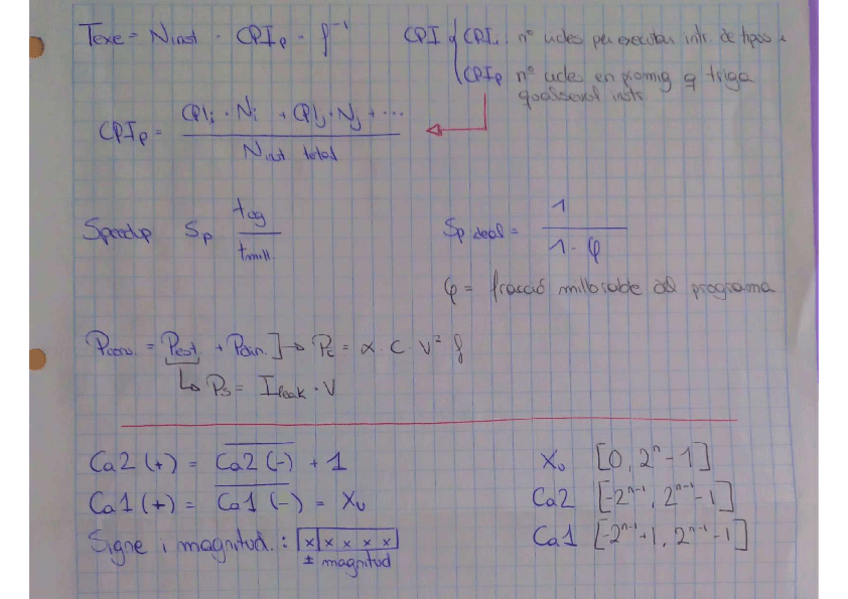 Texe = Ninst · CPIp · f⁻¹
CPI { CPIi: nº cicles per executar instr. de tipus i
CPIp nº cicles en promig q triga
qualsevol instr.
CPIp = (CPIi · Ni + CPIj · Nj + ...) / Ninst total
Speedup Sp tog / tmill
Sp ideal = 1 / 1 - φ
φ = fracció millorable del programa
Pcons. = Pest + Pdin. ] → Pc = α · C · V² f
↳ Ps = Ileak · V
Ca2 (+) = \overline{Ca2 (-)} + 1
Ca1 (+) = \overline{Ca1 (-)} = Xu
Signe i magnitud. : |x|x x x x|
± magnitud
Xu [0, 2ⁿ - 1]
Ca2 [-2ⁿ⁻¹, 2ⁿ⁻¹ - 1]
Ca1 [-2ⁿ⁻¹ + 1, 2ⁿ⁻¹ - 1]